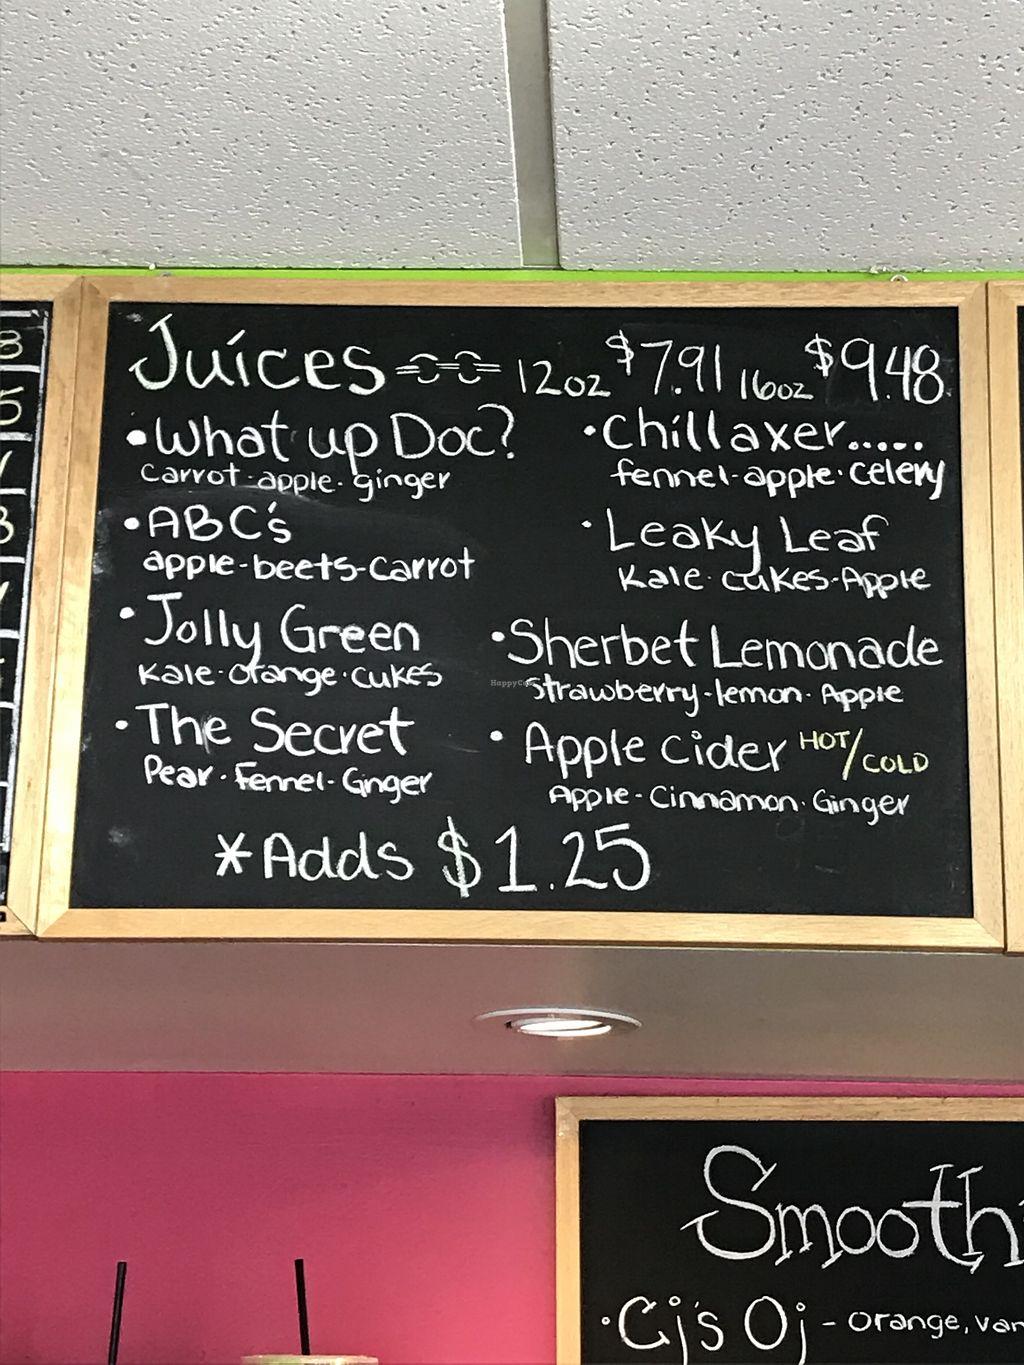 Juices 12oz $7.91 16oz $9.48
•What up Doc?
Carrot-apple-ginger
•ABC's
apple-beets-carrot
•Jolly Green
Kale-orange-cukes
•The Secret
Pear-Fennel-Ginger
•Chillaxer.....
fennel-apple-celery
•Leaky Leaf
Kale-cukes-Apple
•Sherbet Lemonade
Strawberry-lemon-Apple
•Apple Cider HOT/COLD
Apple-Cinnamon-Ginger
*Adds $1.25
HappyCow
Smoothi
•Cj's Oj - orange, van
8
5
3